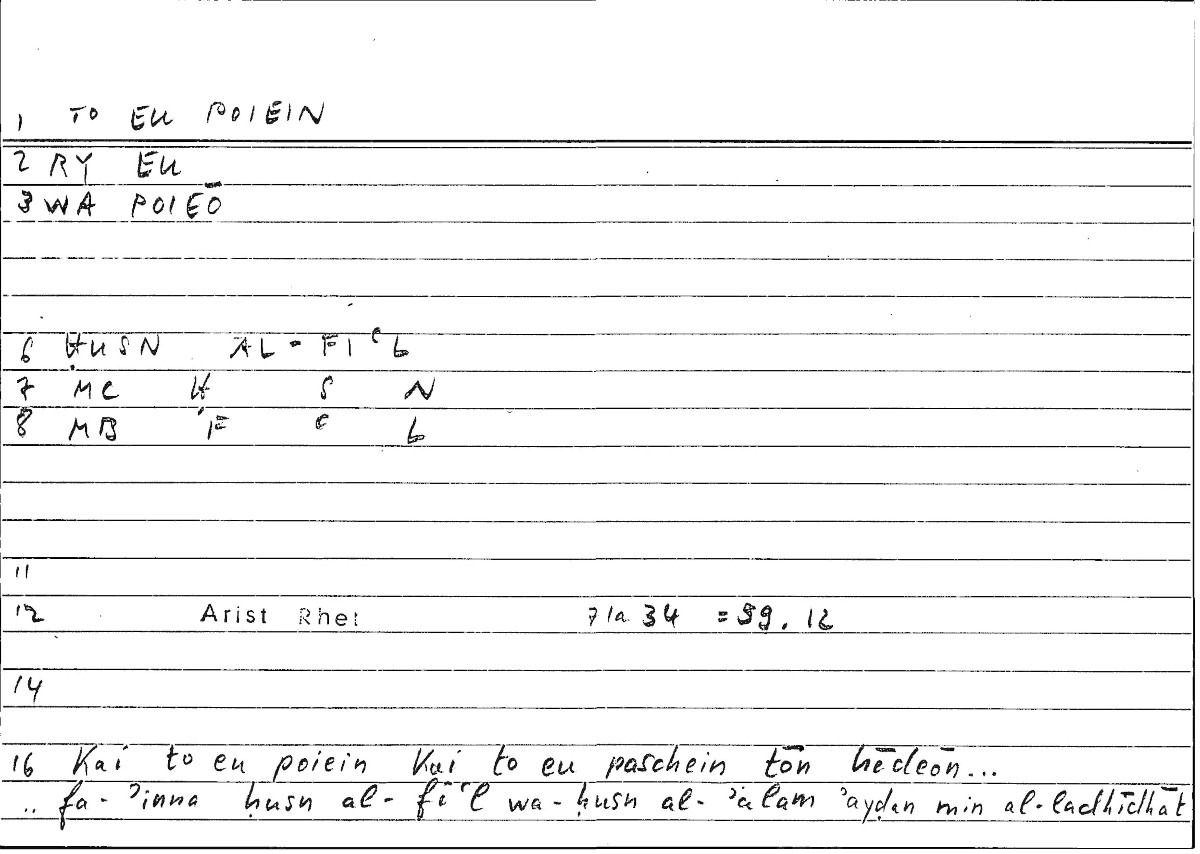 1 TO EU POIEIN
2 RY EU
3 WA POIEŌ
6 ḤUSN AL-FIʿL
7 MC Ḥ S N
8 MB F ʿ L
11
12 Arist Rhet 71a 34 = 59. 12
14
16 Kai to eu poiein kai to eu paschein tōn hēdeōn...
.. fa-ʾinna ḥusn al-fiʿl wa-ḥusn al-ʾālam ʾayḍan min al-ladhīdhāt